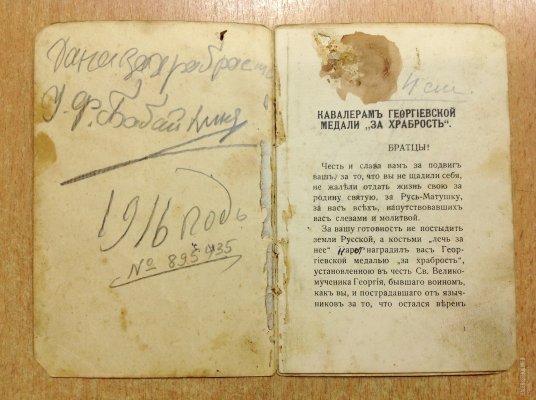 Дана за храбрость
У. Ф. Бабайкину
1916 годъ
№ 895435
4 ст.
КАВАЛЕРАМЪ ГЕОРГІЕВСКОЙ
МЕДАЛИ „ЗА ХРАБРОСТЬ“.
БРАТЦЫ!
Честь и слава вамъ за подвигъ
вашъ, за то, что вы не щадили себя,
не жалѣли отдать жизнь свою за
родину святую, за Русь-Матушку,
за васъ всѣхъ, напутствовавшихъ
васъ слезами и молитвой.
За вашу готовность не постыдить
земли Русской, а костьми „лечь за
нее“ наградилъ васъ Геор-
гіевской медалью „за храбрость“,
установленною въ честь Св. Велико-
мученика Георгія, бывшаго воиномъ,
какъ вы, и пострадавшаго отъ языч-
никовъ за то, что остался вѣренъ
1